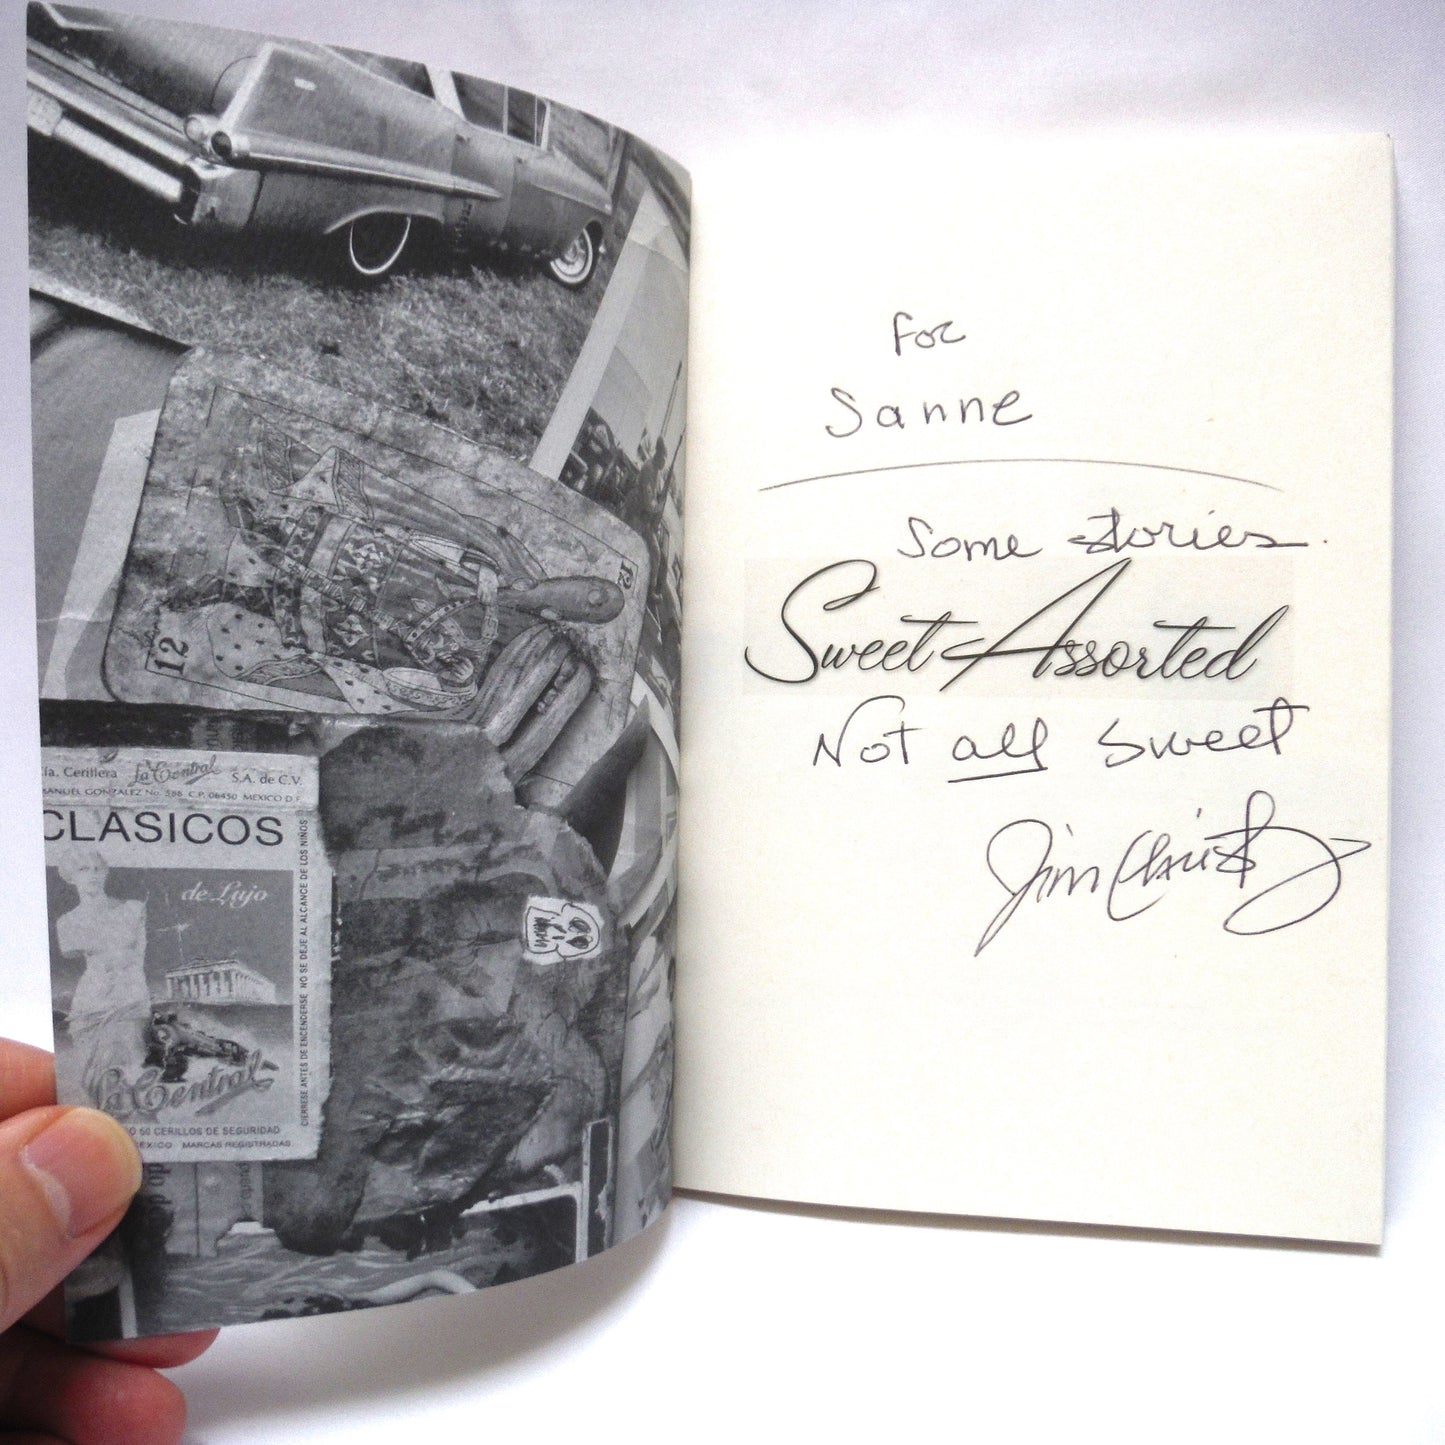 12
12
ía. Cerillera La Central S.A. de C.V.
MANUEL GONZALEZ No. 588 C.P. 06450 MEXICO D.F.
CLASICOS
de Lujo
La Central
50 CERILLOS DE SEGURIDAD
MEXICO MARCAS REGISTRADAS
CIERRESE ANTES DE ENCENDERSE NO SE DEJE AL ALCANCE DE LOS NIÑOS
For
Sanne
Some stories.
Sweet Assorted
Not all sweet
Jim Christy